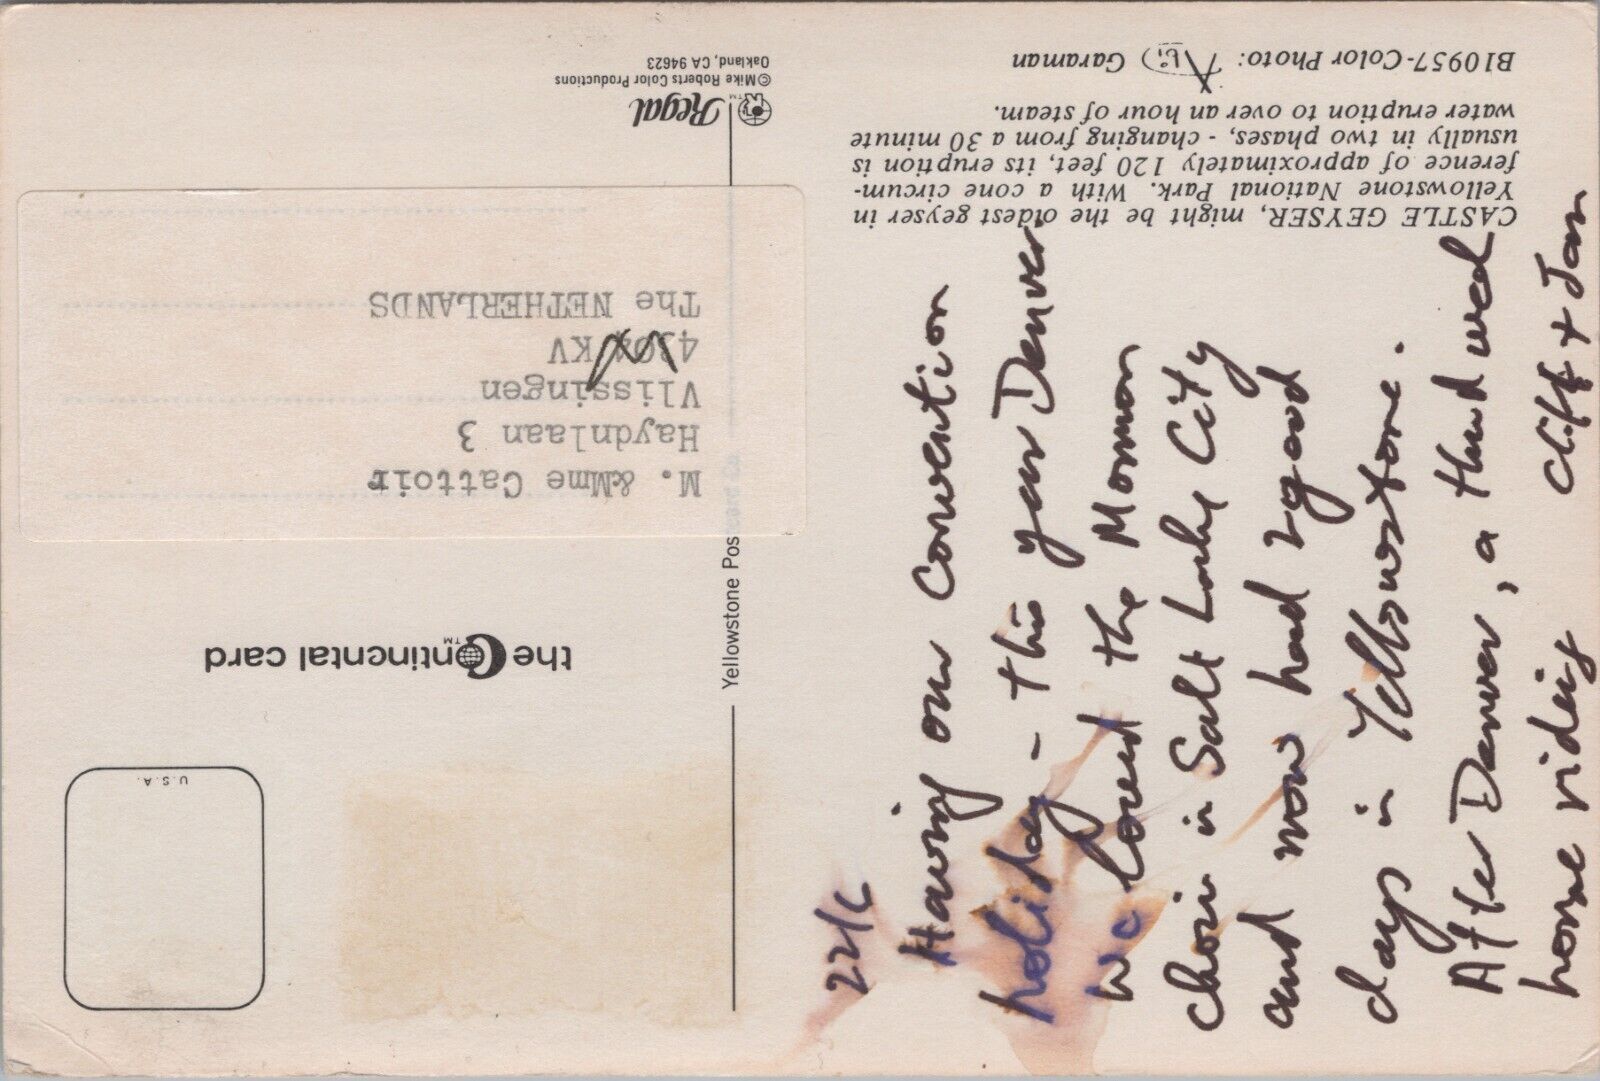 CASTLE GEYSER, might be the oldest geyser in
Yellowstone National Park. With a cone circum-
ference of approximately 120 feet, its eruption is
usually in two phases, - changing from a 30 minute
water eruption to over an hour of steam.
B10957-Color Photo: Garaman
22/6
Having our convention
holiday - this year Denver.
We loved the Mormon
choir in Salt Lake City
and now had 2 good
days in Yellowstone.
After Denver, a third week
horse riding Cliff + Jan
Regal™
©Mike Roberts Color Productions
Oakland, CA 94623
Yellowstone Postcard Co
the Continental card
™
U.S.A.
M. &Mme Cattoir
Haydnlaan 3
Vlissingen
KV
The NETHERLANDS